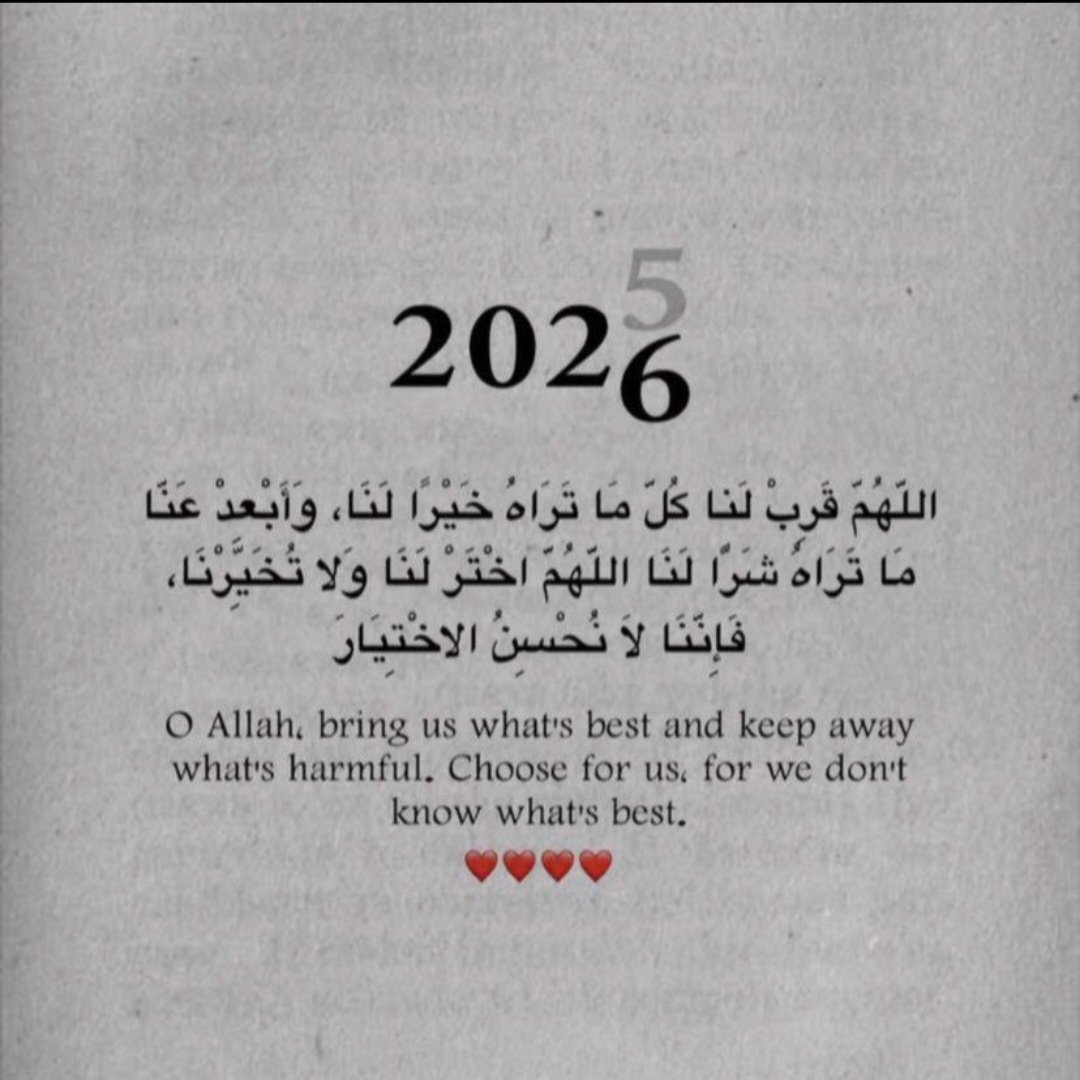 5
2026
اللّهُمّ قَرِبْ لَنا كُلّ مَا تَرَاهُ خَيْرًا لَنَا، وَأَبْعدْ عَنّا
مَا تَرَاهُ شَرًّا لَنَا اللّهُمّ اخْتَرْ لَنَا وَلا تُخَيَّرْنَا،
فَإِنّنَا لاَ نُحْسِنُ الاخْتِيَارَ
O Allah, bring us what's best and keep away
what's harmful. Choose for us, for we don't
know what's best.
❤️❤️❤️❤️